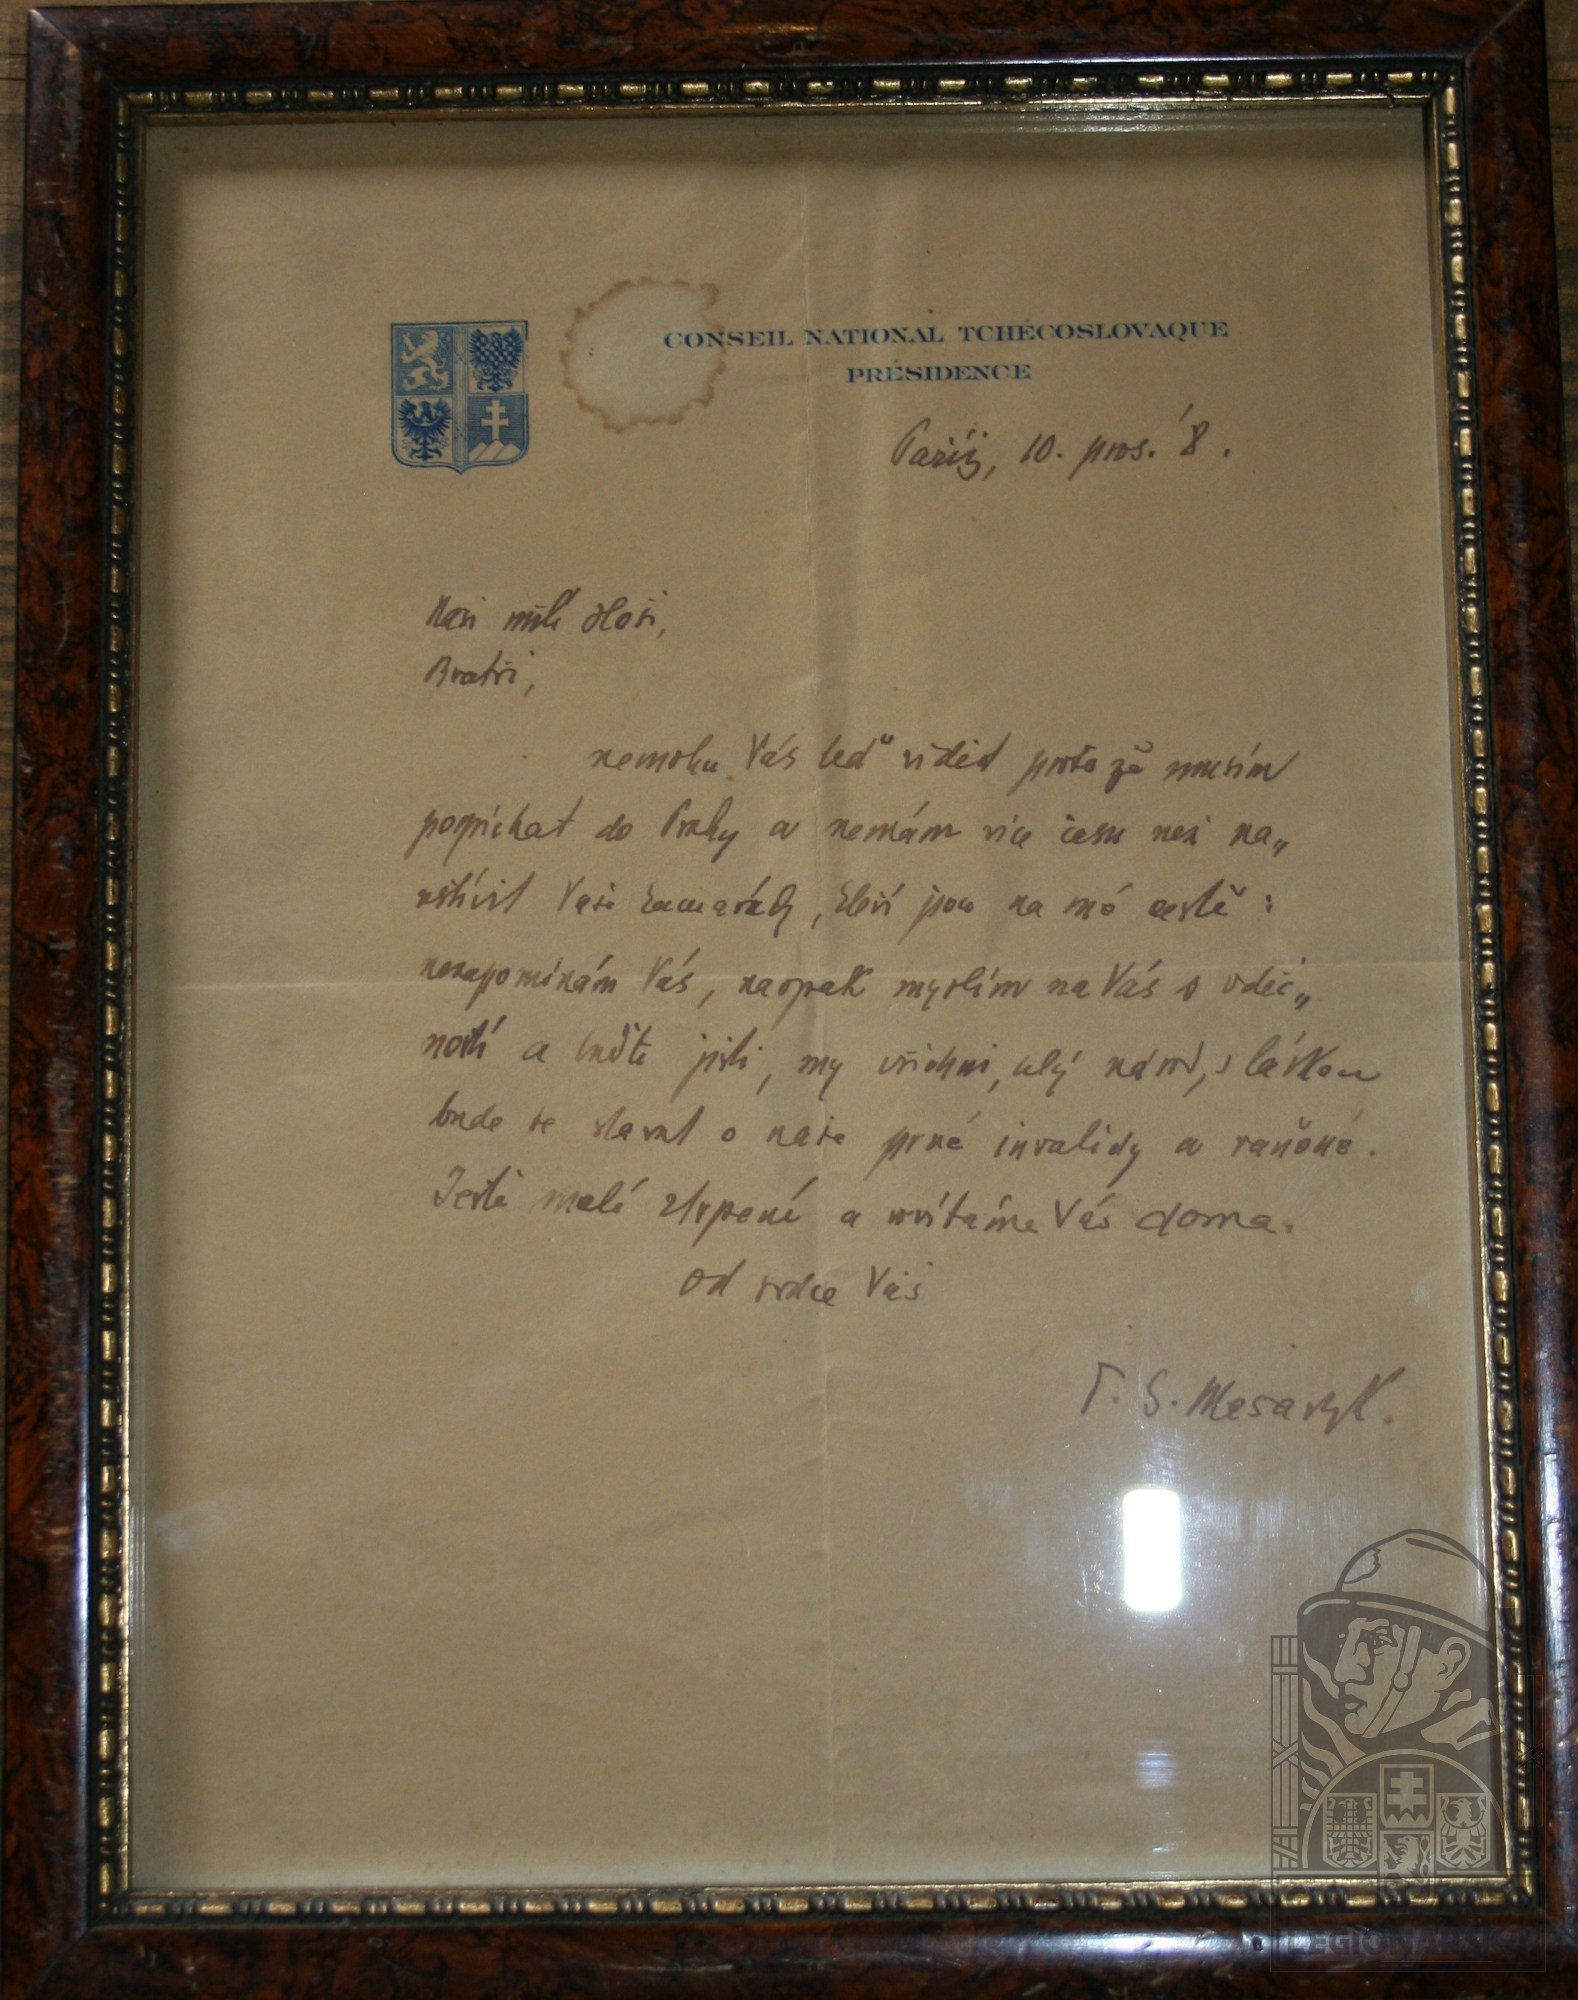 CONSEIL NATIONAL TCHÉCOSLOVAQUE
PRÉSIDENCE
Paříž, 10. pros. '8.
Naši milí hoši,
Bratři,
nemohu Vás teď vidět protože musím
pospíchat do Prahy a nemám více času než na„
vštívit Vaše kamarády, kteří jsou na mé cestě:
nezapomínám Vás, naopak myslím na Vás s vděč„
ností a buďte jisti, my všichni, celý národ, s láskou
bude se starat o naše prvé invalidy a raněné.
Ještě malé strpení a uvítáme Vás doma.
Od srdce Váš
T. G. Masaryk.
LEGIO